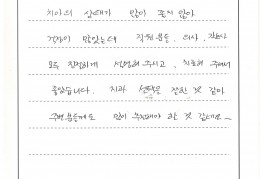 치아의 상태가 많이 좋지 않아
걱정이 많았는데 직원분들, 의사, 간호사
모두 친절하게 설명해 주시고, 치료해 주셔서
좋았습니다. 치과 선택은 잘한 것 같아
주변분들께도 많이 추천해야 할 것 같네요~